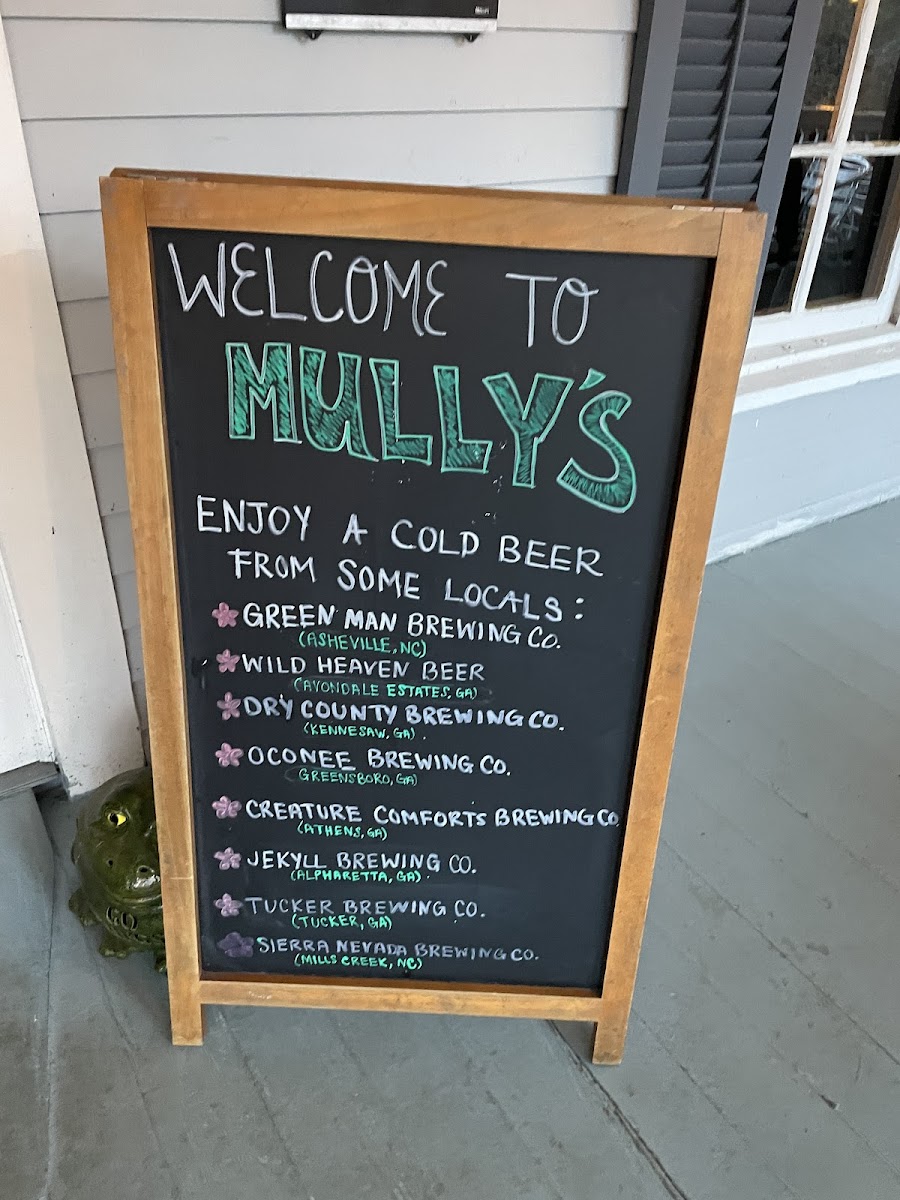 WELCOME TO
MULLY'S
ENJOY A COLD BEER
FROM SOME LOCALS:
GREEN MAN BREWING CO.
(ASHEVILLE, NC)
WILD HEAVEN BEER
(AVONDALE ESTATES, GA)
DRY COUNTY BREWING CO.
(KENNESAW, GA)
OCONEE BREWING CO.
GREENSBORO, GA)
CREATURE COMFORTS BREWING CO
(ATHENS, GA)
JEKYLL BREWING CO.
(ALPHARETTA, GA)
TUCKER BREWING CO.
(TUCKER, GA)
SIERRA NEVADA BREWING CO.
(MILLS CREEK, NC)